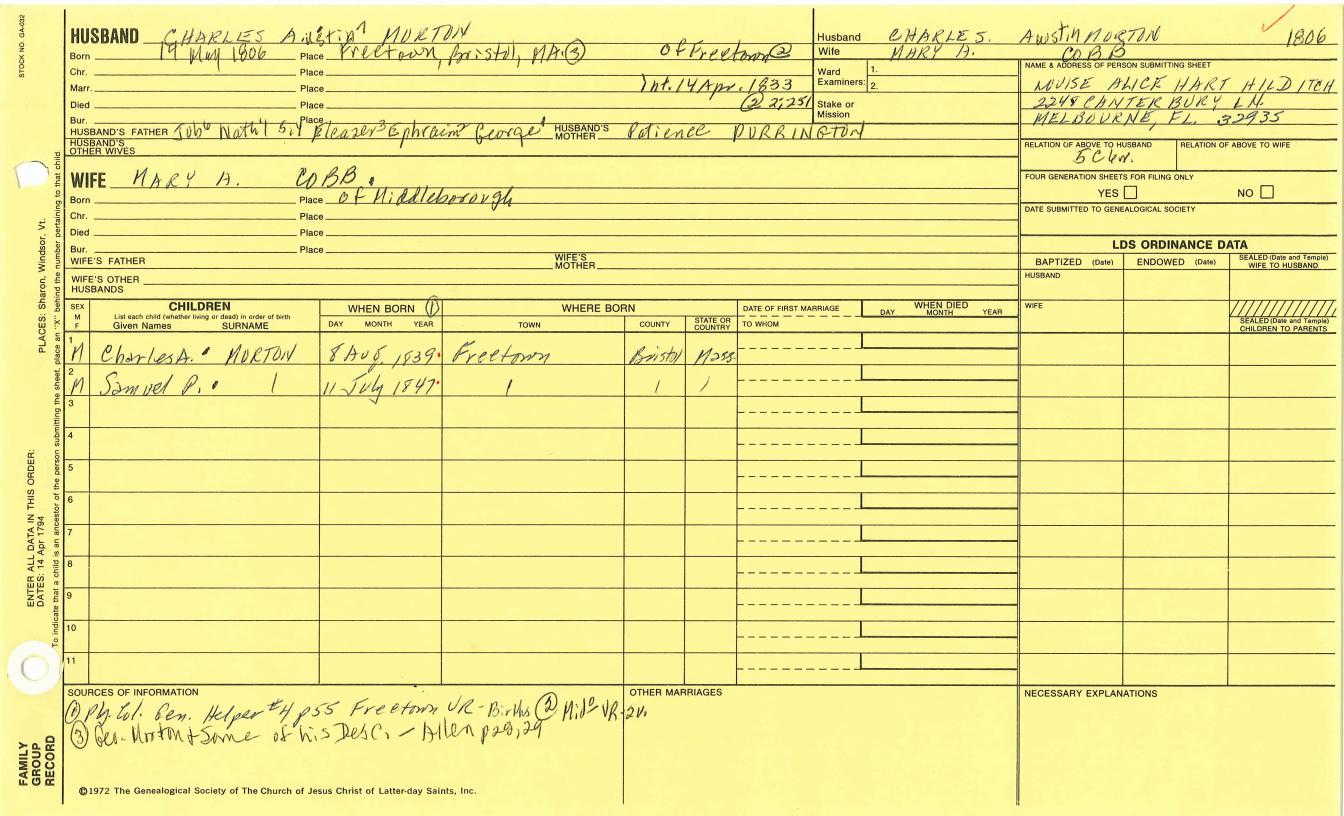 STOCK NO. GA-032
HUSBAND CHARLES Austin MORTON
Born 19 May 1806 Place Freetown, Bristol, MA. ③ of Freetown ②
Chr. Place
Marr. Place Int. 14 Apr. 1833
Died Place (2 2;251
Bur. Place
HUSBAND'S FATHER Job6 Nath'l 5,4 Eleazer3 Ephraim2 George1 HUSBAND'S MOTHER Patience PURRINGTON
HUSBAND'S OTHER WIVES
Husband CHARLES. Austin MORTON 1806
Wife MARY A. COBB
Ward Examiners: 1.
2.
Stake or Mission
NAME & ADDRESS OF PERSON SUBMITTING SHEET
LOUISE ALICE HART HILDITCH
2248 CANTERBURY LN.
MELBOURNE, FL. 32935
RELATION OF ABOVE TO HUSBAND RELATION OF ABOVE TO WIFE
FOUR GENERATION SHEETS FOR FILING ONLY
YES NO
DATE SUBMITTED TO GENEALOGICAL SOCIETY
WIFE MARY A. COBB.
Born Place of Middleborough
Chr. Place
Died Place
Bur. Place
WIFE'S FATHER WIFE'S MOTHER
WIFE'S OTHER HUSBANDS
LDS ORDINANCE DATA
BAPTIZED (Date) ENDOWED (Date) SEALED (Date and Temple) WIFE TO HUSBAND
HUSBAND
WIFE
SEALED (Date and Temple) CHILDREN TO PARENTS
SEX M F CHILDREN WHEN BORN ① WHERE BORN DATE OF FIRST MARRIAGE WHEN DIED
List each child (whether living or dead) in order of birth
Given Names SURNAME DAY MONTH YEAR TOWN COUNTY STATE OR COUNTRY TO WHOM DAY MONTH YEAR
1 M Charles A. MORTON 8 Aug 1839 Freetown Bristol Mass
2 M Samuel P. 11 July 1847
3
4
5
6
7
8
9
10
11
SOURCES OF INFORMATION OTHER MARRIAGES NECESSARY EXPLANATIONS
① Ply. Col. Gen. Helper #4 p55 Freetown VR-Births ② Mido VR-2v.
③ Geo. Morton & Some of his Desc. - Allen p28,29
©1972 The Genealogical Society of The Church of Jesus Christ of Latter-day Saints, Inc.
PLACES: Sharon, Windsor, Vt.
ENTER ALL DATA IN THIS ORDER:
DATES: 14 Apr 1794
To indicate that a child is an ancestor of the person submitting the sheet, place an "X" behind the number pertaining to that child.
FAMILY GROUP RECORD